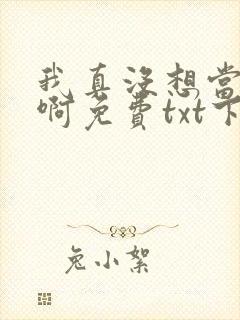 我真没想当
啊免费txt下
兔小絮